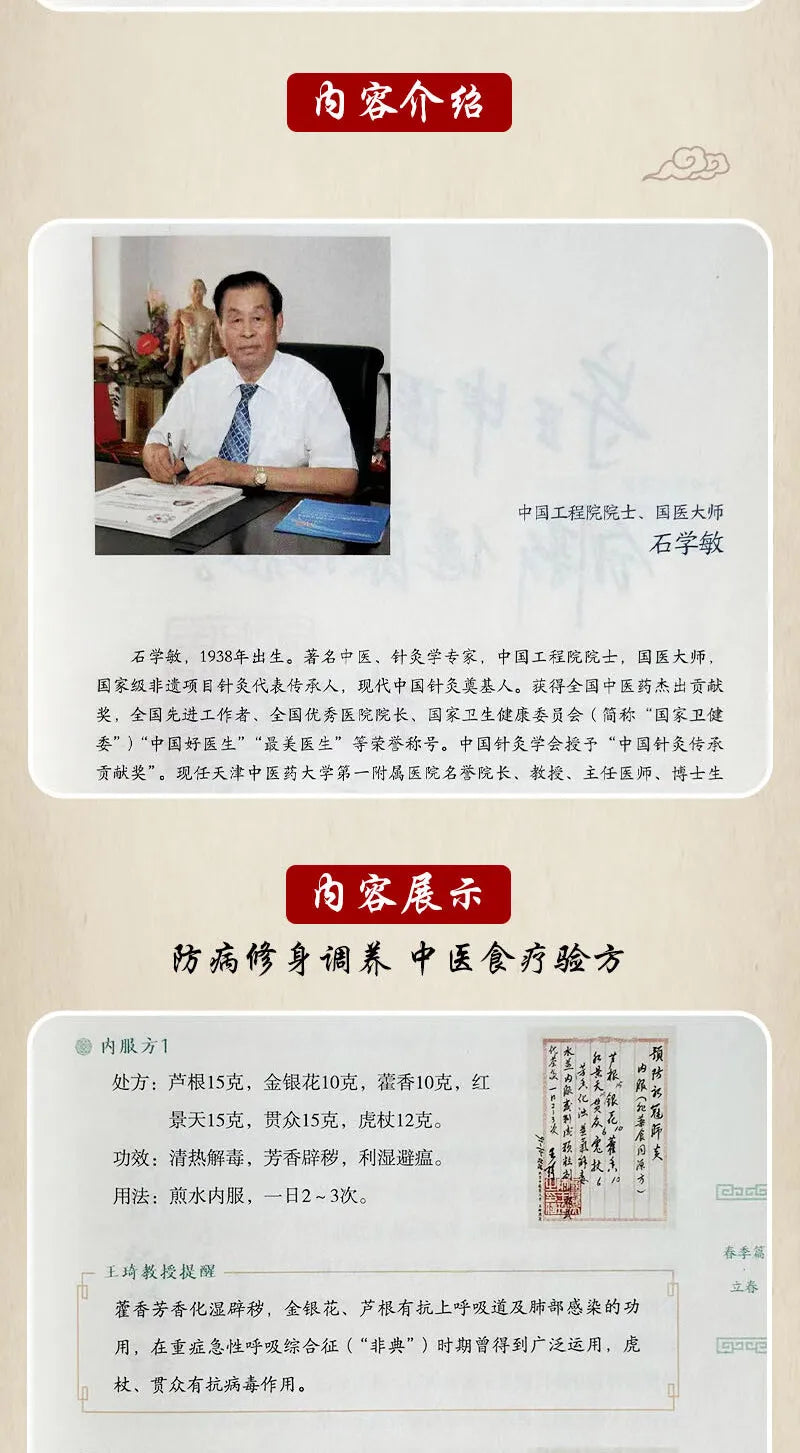 内容介绍
中国工程院院士、国医大师
石学敏
石学敏，1938年出生。著名中医、针灸学专家，中国工程院院士，国医大师，
国家级非遗项目针灸代表传承人，现代中国针灸奠基人。获得全国中医药杰出贡献
奖，全国先进工作者、全国优秀医院院长、国家卫生健康委员会（简称“国家卫健
委”）“中国好医生”“最美医生”等荣誉称号。中国针灸学会授予“中国针灸传承
贡献奖”。现任天津中医药大学第一附属医院名誉院长、教授、主任医师、博士生
内容展示
防病修身调养 中医食疗验方
内服方1
处方：芦根15克，金银花10克，藿香10克，红
景天15克，贯众15克，虎杖12克。
功效：清热解毒，芳香辟秽，利湿避瘟。
用法：煎水内服，一日2~3次。
预防新冠肺炎
内服（
芦根 银花10 藿香10
红景天 贯众6 虎杖6
芳香化浊
水煎内服或制成颗粒剂
代茶饮 一日2-3次
春季篇
·
立春
王琦教授提醒
藿香芳香化湿辟秽，金银花、芦根有抗上呼吸道及肺部感染的功
用，在重症急性呼吸综合征（“非典”）时期曾得到广泛运用，虎
杖、贯众有抗病毒作用。